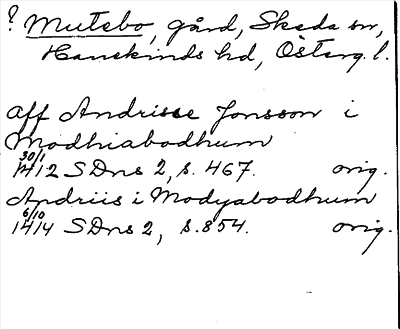 ? Mutebo, gård, Skeda sn,
Hanekinds hd, Österg. l.
aff Andrisse Jonsson i
Modhiabodhum
30/1 1412 SDns 2, s. 467. orig.
Andriis i Modyabodhum
6/10 1414 SDns 2, s. 854. orig.